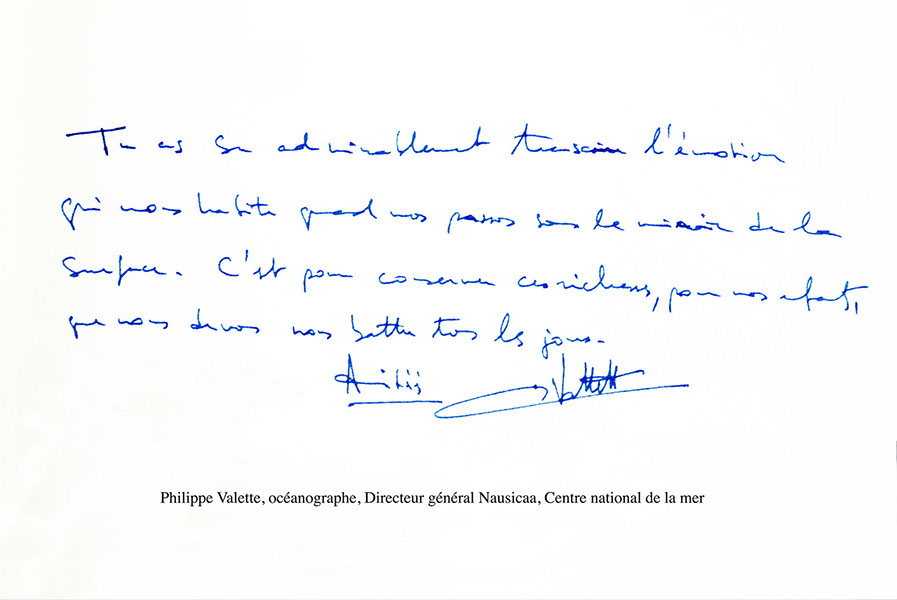 Tu as su admirablement transcrire l'émotion
qui nous habite quand nous passons sous le miroir de la
surface. C'est pour conserver ces richesses, pour nos enfants,
que nous devons nous battre tous les jours.
Amitiés Valette
Philippe Valette, océanographe, Directeur général Nausicaa, Centre national de la mer